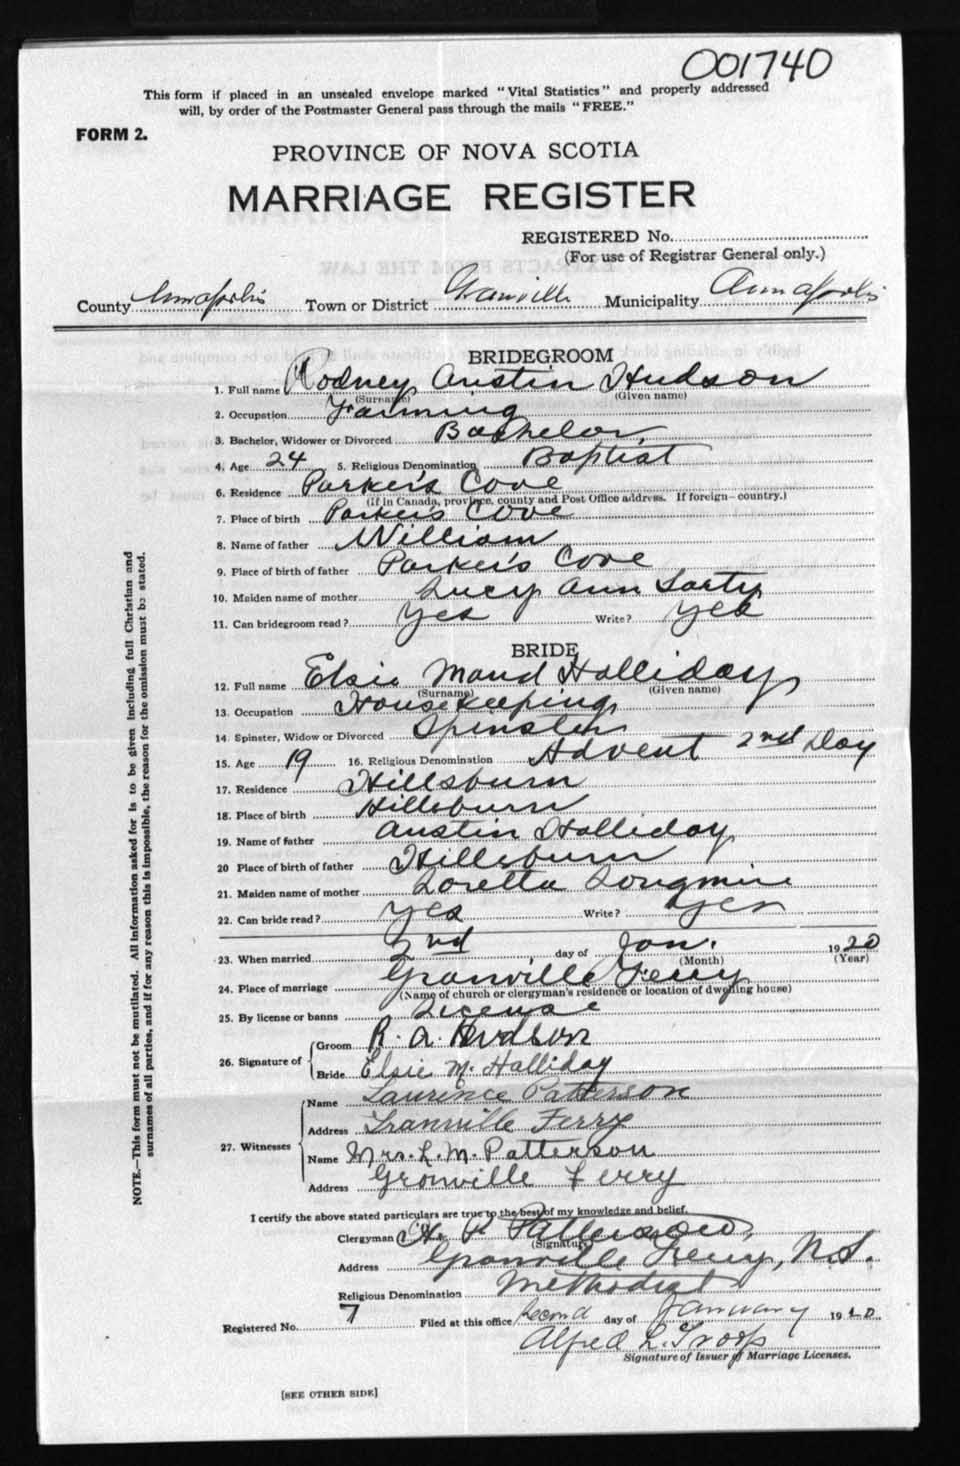 001740
This form if placed in an unsealed envelope marked "Vital Statistics" and properly addressed
will, by order of the Postmaster General pass through the mails "FREE."
FORM 2.
PROVINCE OF NOVA SCOTIA
MARRIAGE REGISTER
REGISTERED No.
(For use of Registrar General only.)
County Annapolis Town or District Granville Municipality Annapolis
BRIDEGROOM
1. Full name Rodney Austin Hudson
(Surname) (Given name)
2. Occupation Farming
3. Bachelor, Widower or Divorced Bachelor
4. Age 24 5. Religious Denomination Baptist
6. Residence Parker's Cove
(If in Canada, province, county and Post Office address. If foreign—country.)
7. Place of birth Parker's Cove
8. Name of father William
9. Place of birth of father Parker's Cove
10. Maiden name of mother Lucy Ann Sarty
11. Can bridegroom read? Yes Write? Yes
BRIDE
12. Full name Elsie Maud Halliday
(Surname) (Given name)
13. Occupation Housekeeping
14. Spinster, Widow or Divorced Spinster
15. Age 19 16. Religious Denomination Advent 2nd Day
17. Residence Hillsburn
18. Place of birth Hillsburn
19. Name of father Austin Halliday
20 Place of birth of father Hillsburn
21. Maiden name of mother Loretta Longmire
22. Can bride read? Yes Write? Yes
23. When married 2nd day of Jan. 1920
(Month) (Year)
24. Place of marriage Granville Ferry
(Name of church or clergyman's residence or location of dwelling house)
25. By license or banns License
26. Signature of Groom R. A. Hudson
Bride Elsie M. Halliday
27. Witnesses Name Laurence Patterson
Address Granville Ferry
Name Mrs. L. M. Patterson
Address Granville Ferry
I certify the above stated particulars are true to the best of my knowledge and belief.
Clergyman P Patterson
(Signature)
Address Granville Ferry, N.S.
Religious Denomination Methodist
Registered No. 7 Filed at this office Second day of January 1920
Alfred L. Troop
Signature of Issuer of Marriage Licenses.
[SEE OTHER SIDE]
NOTE.—This form must not be mutilated. All information asked for is to be given including full Christian and
surnames of all parties, and if for any reason this is impossible, the reason for the omission must be stated.